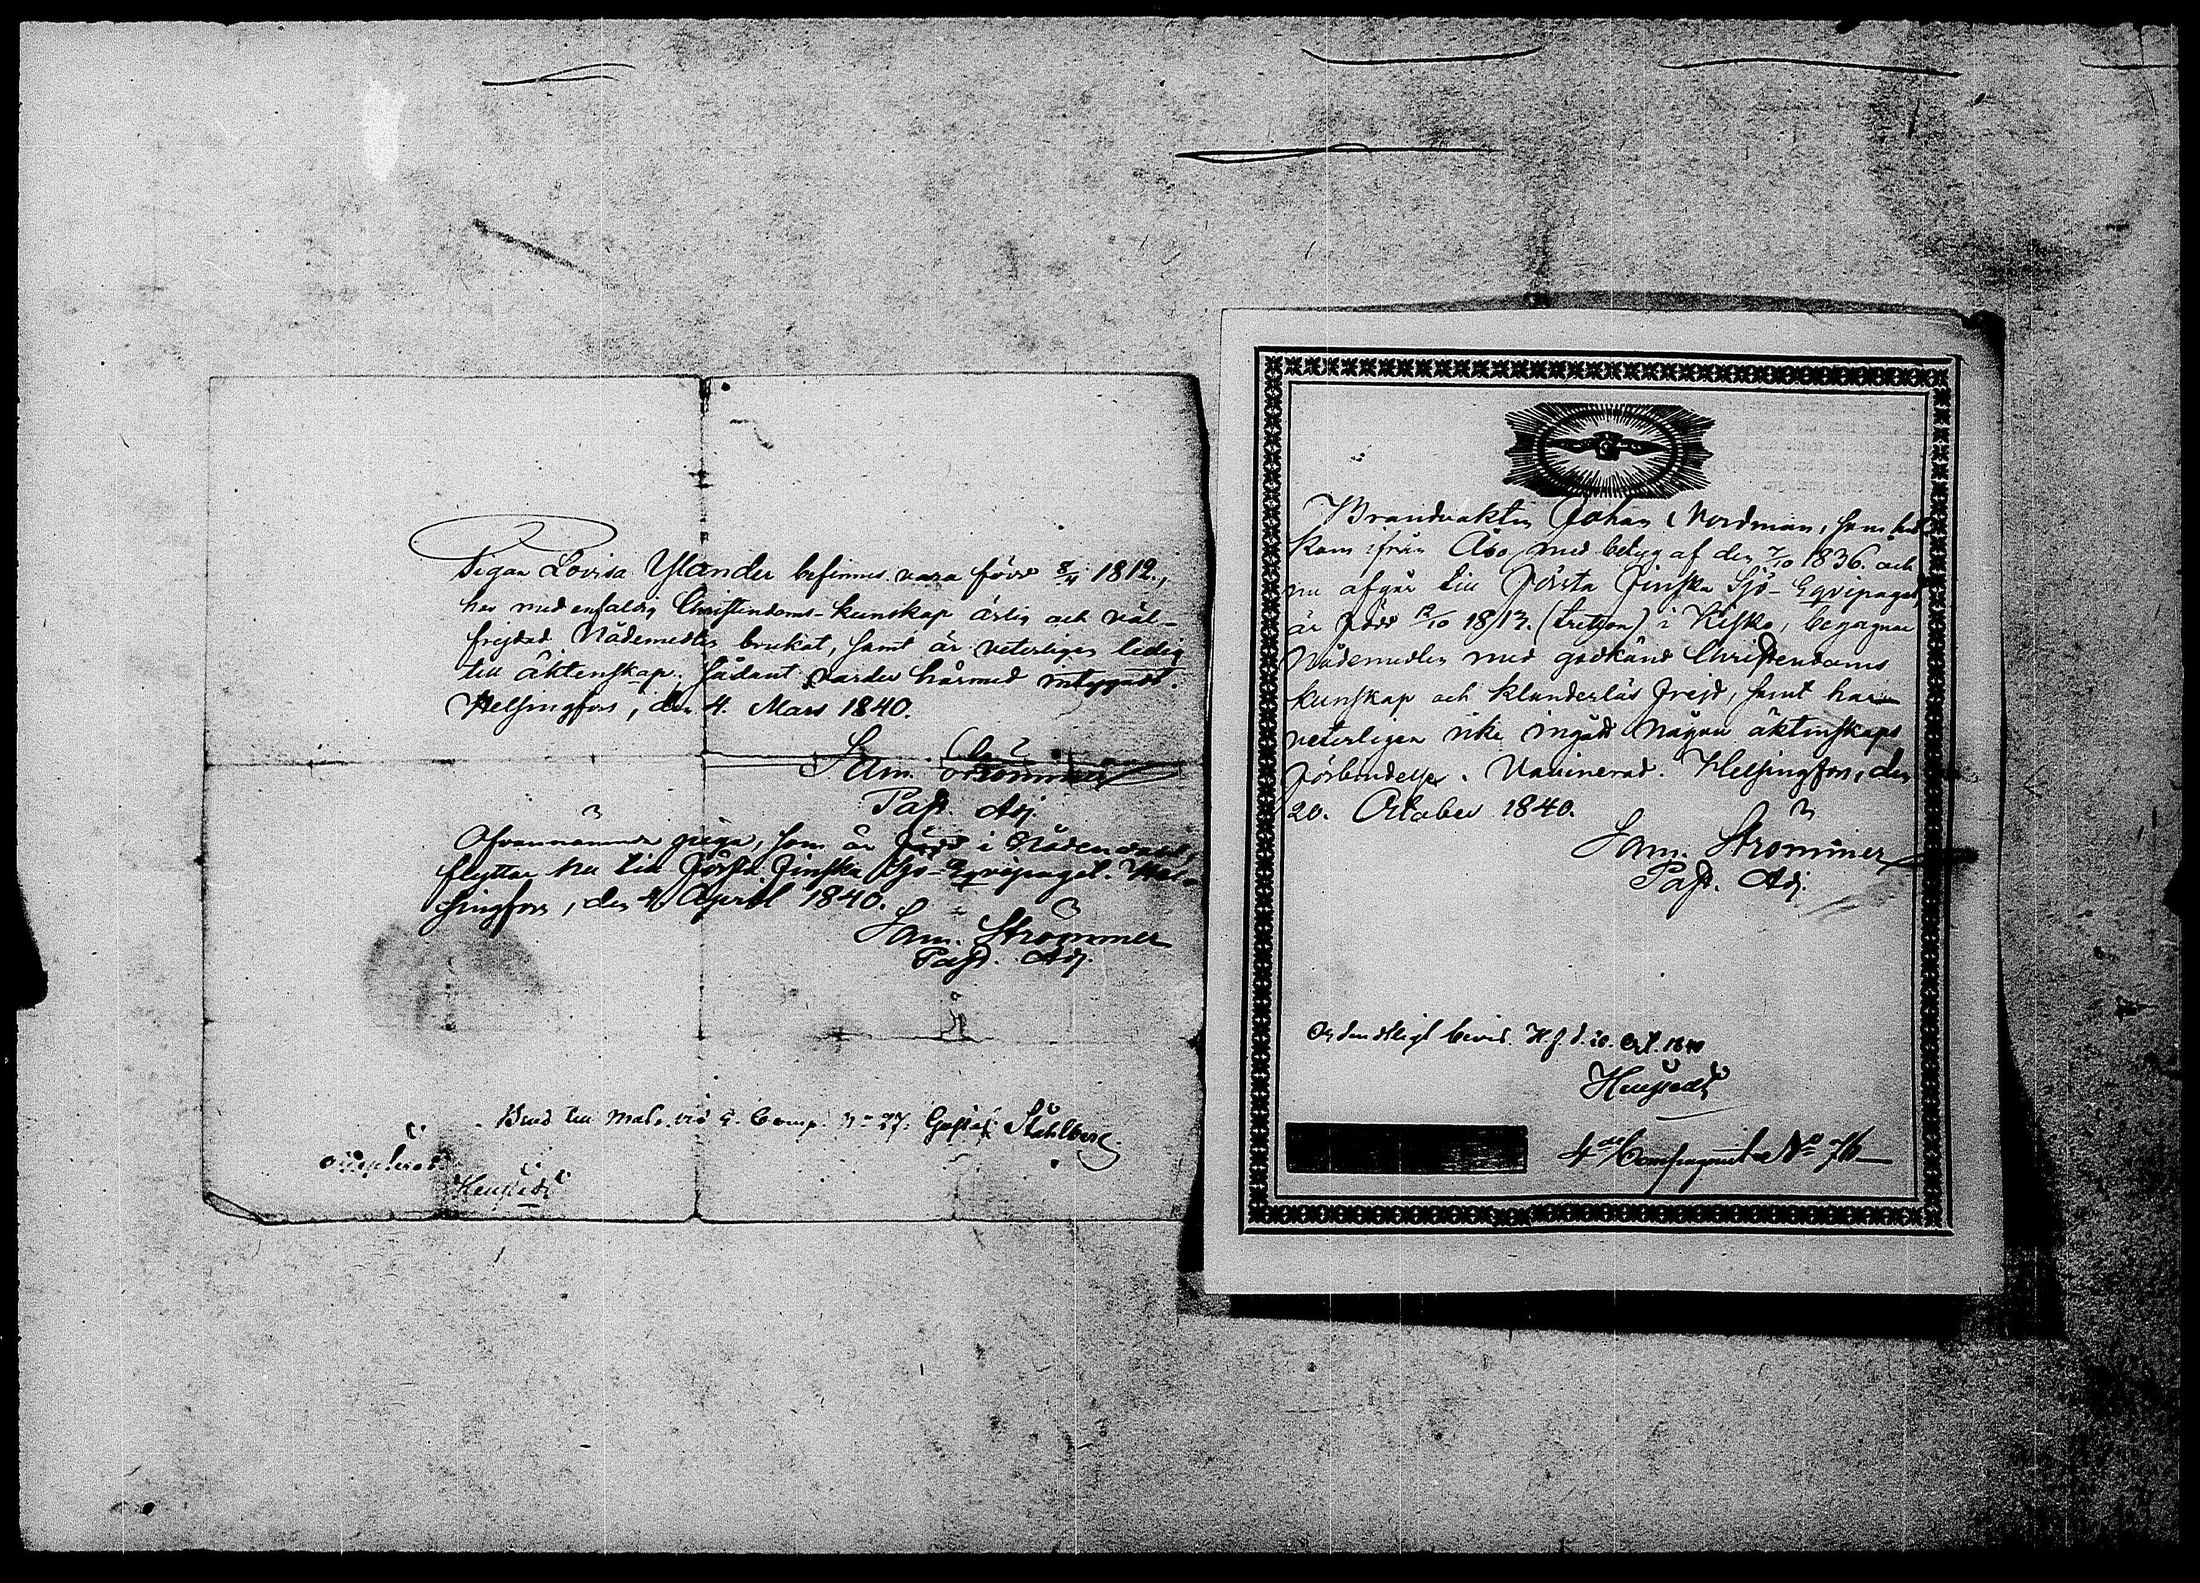 Pigan Lovisa Ylander befinnes vara född 8/4 1812.,
har med enfaldig Christendoms-kunskap ärlig och väl-
frejdad Nådemedlen brukat, samt är veterligen ledig
till äktenskap; sådant varder härmed intygadt.
Helsingfors, den 4. Mars 1840.
Sam. Strömmer
Past. Adj.
Ofvannämnde piga, som är född i Nådendal,
flyttar nu till Första Finska Sjö-Eqvipaget. Hel-
singfors, den 4 April 1840.
Sam. Strömmer
Past. Adj.
Gustaf Ståhlberg
Brandvakten Johan Nordman, som hit
kom ifrån Åbo med betyg af den 7/10 1836. och
nu afgår till Första Finska Sjö-Eqvipaget,
är född 12/10 1813. (tretton) i Kisko, begagnar
Nådemedlen med godkänd Christendoms
kunskap och klanderlös frejd, samt har
veterligen icke ingått någon äktenskaps
förbindelse. Vaccinerad. Helsingfors, den
20. October 1840.
Sam. Strömmer
Past. Adj.
Ordentligt bevis. H.f. d. 20. Oct. 1840
4de Compagniet No 76